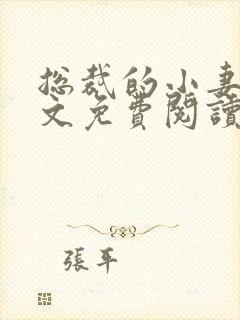 总裁的小妻
文免費閱讀
張平